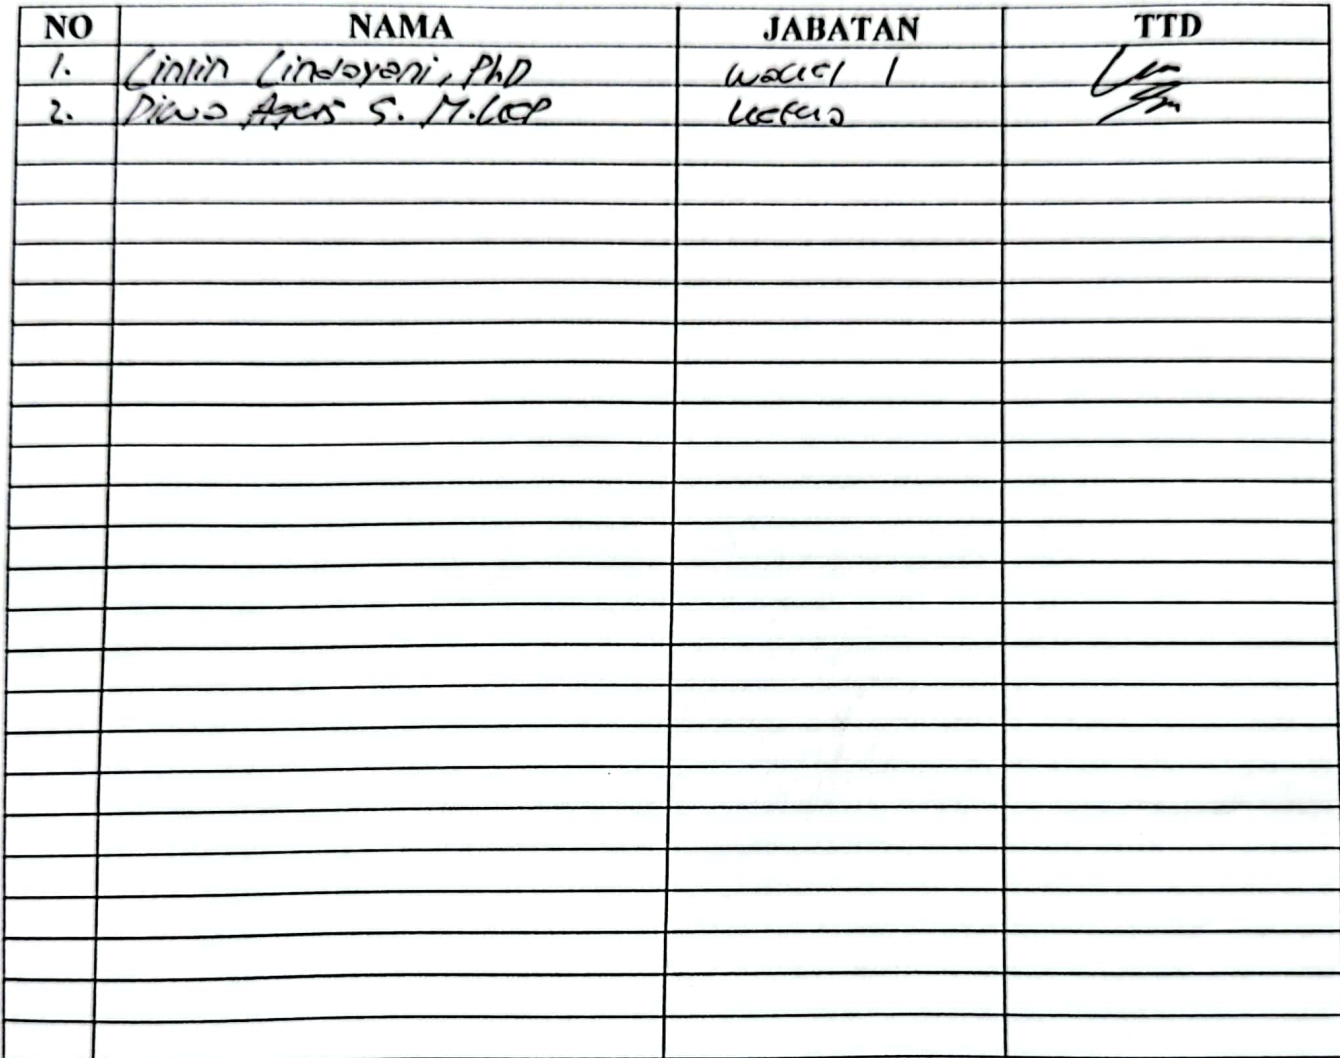 NO NAMA JABATAN TTD
1. Linlin Lindayani, PhD Wakel 1
2. Diwa Agus S. M.Kep Ketua